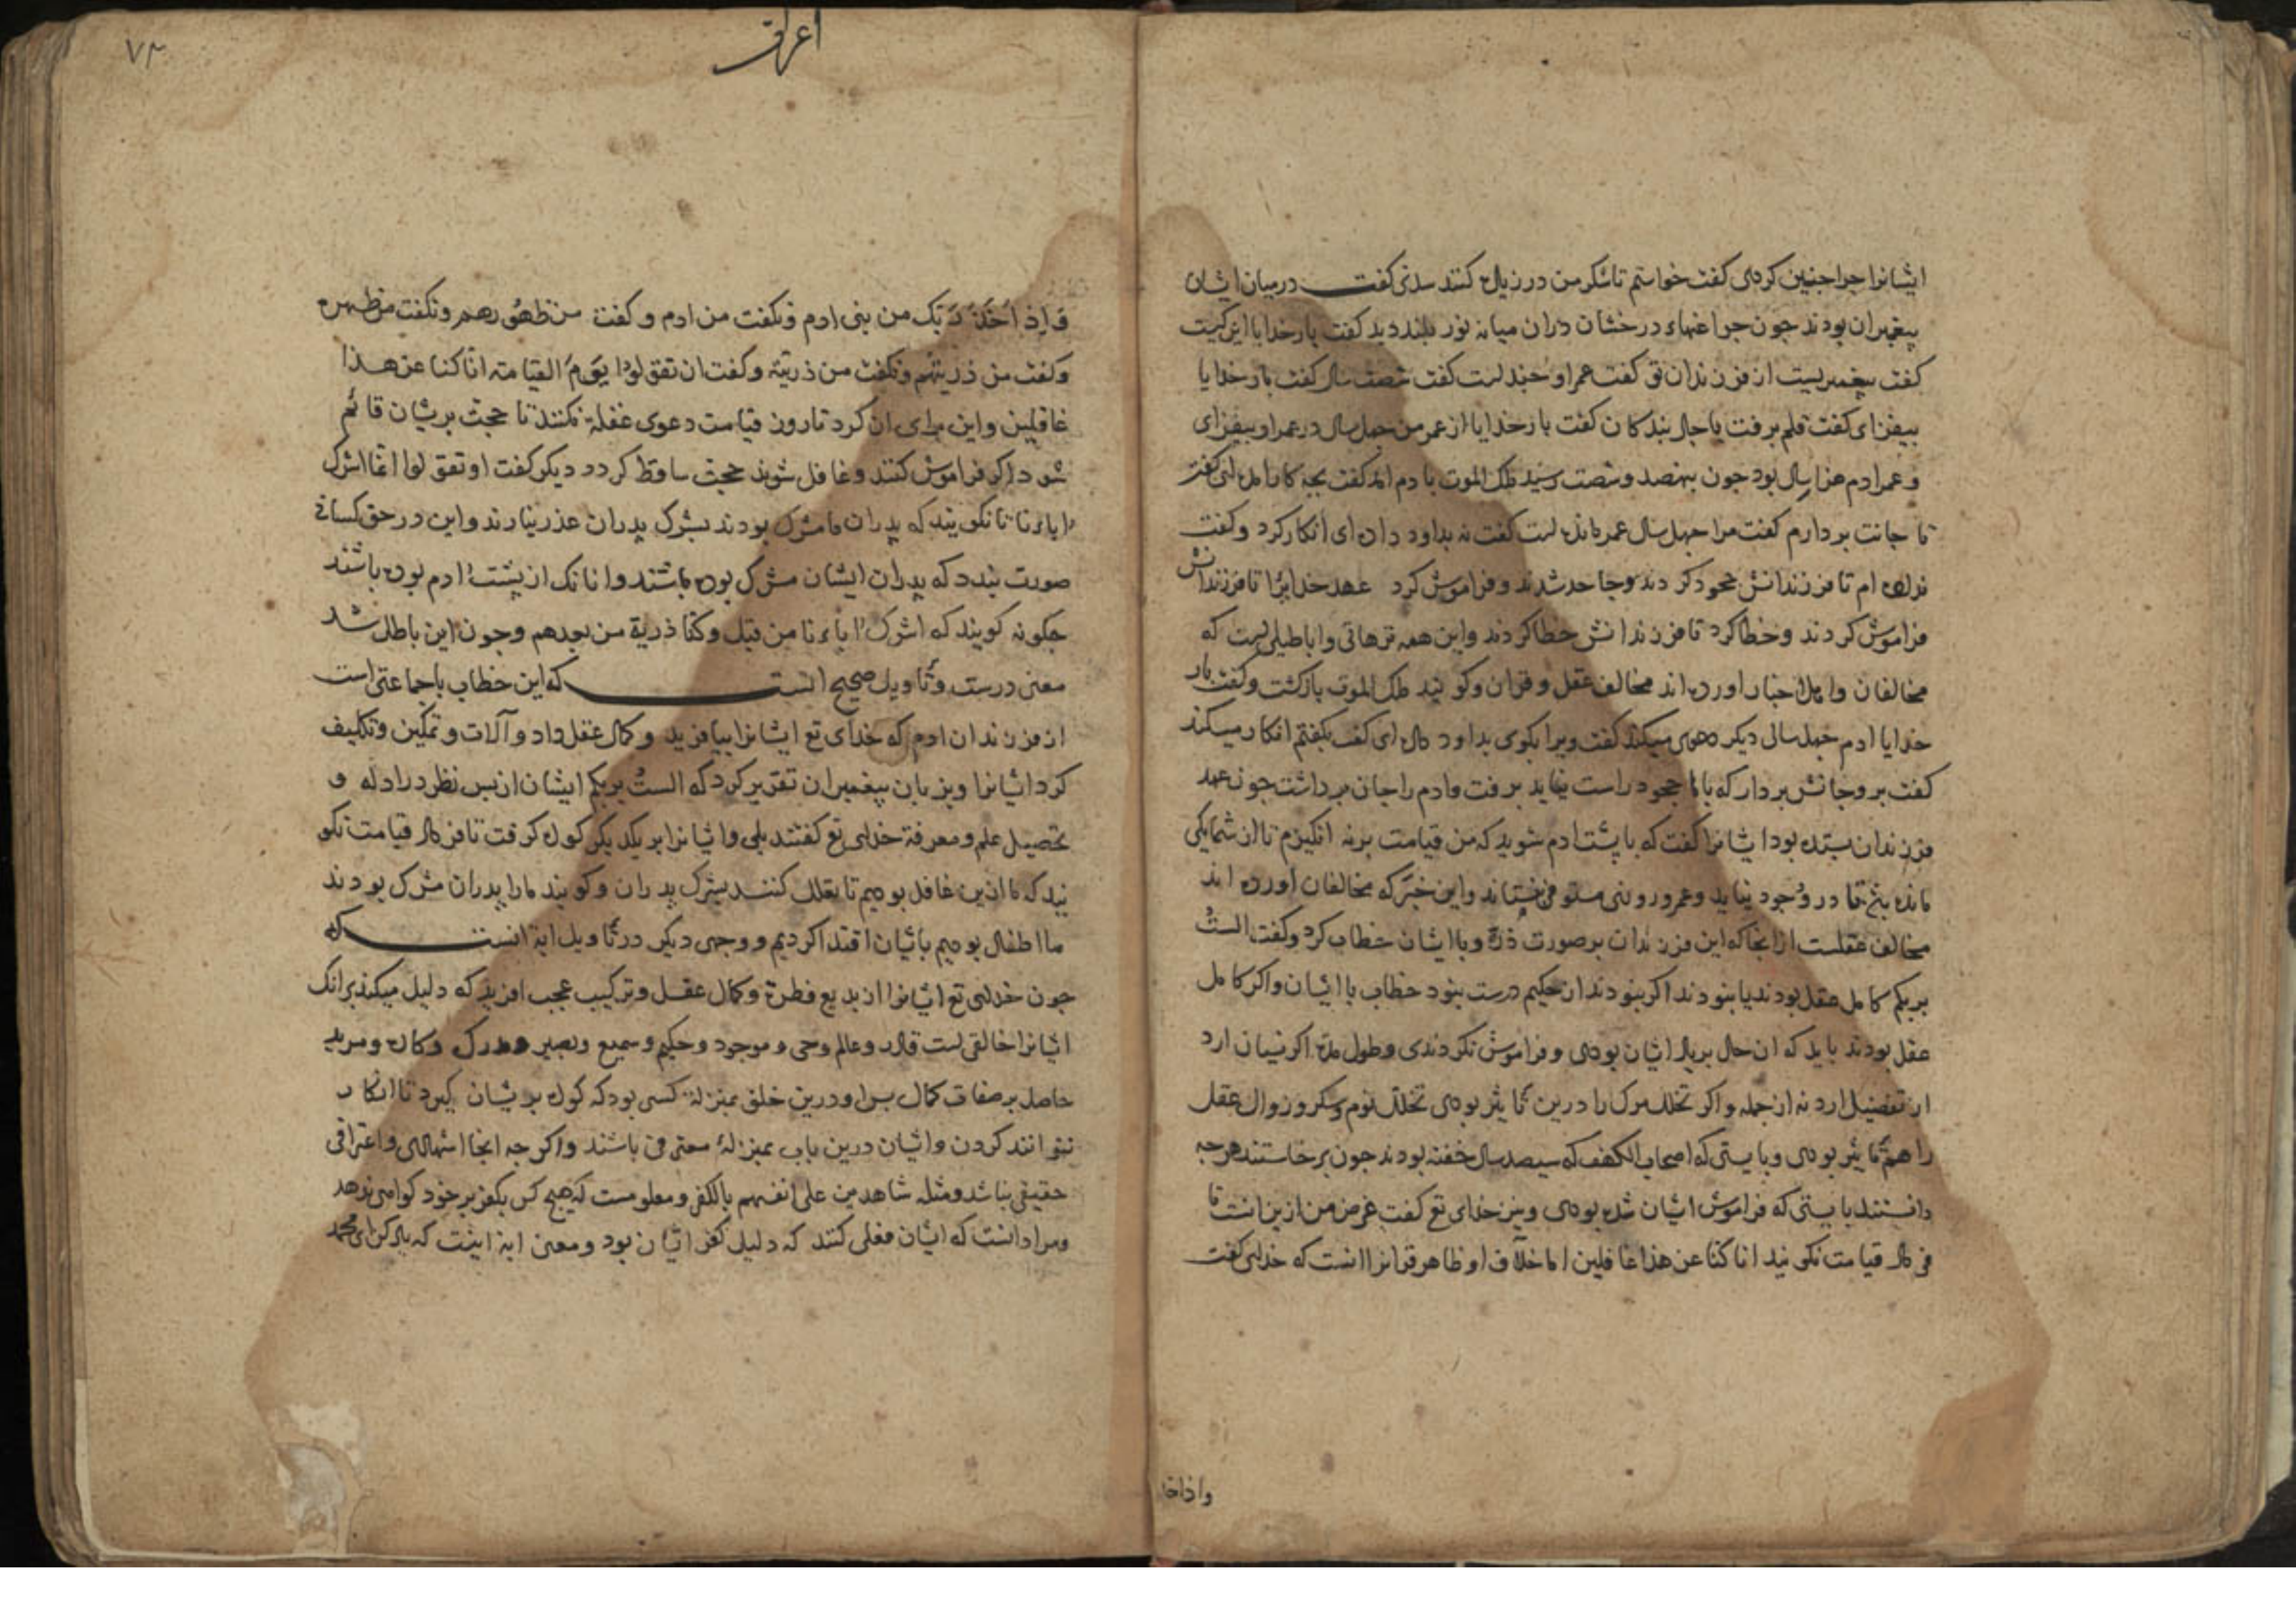 ایشانرا جرا جنین کردی کفت خواستم تا شکر من در زیال کنند سدی کفت در میان ایشان
بیغمبران بودند جون جراغهاء درخشان دران میانه نور بلند دید کفت بار خدایا این کیت
کفت بیغمبریست از فرزندان تو کفت عمر او جند لست کفت شصت سال کفت بار خدایا
بیفزای کفت قلم برفت باجال بندکان کفت بار خدایا از عمر من جهل سال در عمر او بیفزای
و عمر ادم هزار سال بود جون بنهصد و شصت رسید ملک الموت با دم امد کفت بجه کار امدۀ کفت
تا جانت بردارم کفت مرا جهل سال عمر مانده لست کفت نه بداود دادۀ ای انکار کرد و کفت
ندادۀ ام تا فرزندانش جحود کردند و جاحد شدند و فراموش کرد عهد خدایرا تا فرزندانش
فراموش کردند و خطا کرد تا فرزندانش خطا کردند و این همه ترهاتی و اباطیلی لست که
مخالفان و اهل اخبار اورده اند مخالف عقل و قران و کویند ملک الموت بازکشت و کفت بار
خدایا ادم جهل سال دیکر دعوی میکند کفت ویرا بکوی بداود دادۀ ای کفت بکفتم انکار میکند
کفت برو جانش بردار که با ما جحود راست نیاید برفت و ادم را جان برداشت جون عهد
فرزندان ستده بود ایشانرا کفت که با پشت ادم شوید که من قیامت برنه انکیزم تا از شما یکی
مانده بتخ تا در وجود نیاید و عمر و روزی مستوفی نستاند و این خبر که مخالفان اورده اند
مخالف عقلست از انجا که این فرزندان بر صورت ذره و با ایشان خطاب کرد و کفت الستُ
بربکم کامل عقل بودند یا نبودند اکر نبودند از حکیم درست نبود خطاب با ایشان و اکر کامل
عقل بودند باید که ان حال بریاد ایشان بودی و فراموش نکردندی و طول مدت اکر نسیان ارد
از تفصیل ارد نه از جمله و اکر تخلل مرک را درین تاثیر بودی تخلل نوم و سکر و زوال عقل
را هم تاثیر بودی و بایستی که اصحاب الکهف که سیصد سال خفته بودند جون برخاستند هرجه
دانستند بایستی که فراموش ایشان شده بودی و نیز خدای تع کفت غرض من ازین انست تا
فردا قیامت نکویند انا کنا عن هذا غافلین اما خلاف او ظاهر قرانرا انست که خدای کفت
واذاخذ
اعراف
۷۳
وَاِذ اَخَذَ رَبّک من بنی ادم و نکفت من ادم و کفت من ظهُورهم و نکفت من ظهره
و کفت من ذریتهم و نکفت من ذریته و کفت ان تقولوا یَوم القیامته انا کنا عن هذا
غافلین و این برای ان کرد تا روز قیامت دعوی غفلة نکنند تا حجت بریشان قائم
شود اکر فراموش کنند و غافل شوند حجت ساقط کردد دیکر کفت او تقولوا انما اشرک
اباؤنا تا نکویند که پدران ما مشرک بودند بشرک پدران عذر نیارند و این در حق کسانی
صورت بندد که پدران ایشان مشرک بوده باشند و انانک از پشت ادم بوده باشند
جکونه کویند که اشرک اباؤنا من قبل و کنا ذریة من بعدهم و جون این باطل شد
معنی درست و تاویل صحیح انست که این خطاب با جماعتی است
از فرزندان ادم که خدای تع ایشانرا بیافرید و کمال عقل داد و آلات و تمکین و تکلیف
کرد ایشانرا و بزبان پیغمبران تقریر کرد که الستُ بربکم ایشان از بس نظر در ادله و
تحصیل علم و معرفة خدای تع کفتند بلی و ایشانرا بر یکدیکر کواه کرفت تا فردا قیامت نکو
یند که ما ازین غافل بودیم تا تعلل کنند بشرک پدران و کویند ما را پدران مشرک بودند
ما اطفال بودیم بایشان اقتدا کردیم و وجهی دیکر در تاویل ایة انست که
جون خدای تع ایشانرا از بدیع فطرة و کمال عقل و ترکیب عجب افرید که دلیل میکند برانک
ایشانرا خالقی لست قادر و عالم و حی و موجود و حکیم و سمیع و بصیر و مدرک و کاره و مرید
حاصل بر صفات کمال بس او درین خلق بمنزلة کسی بود که کواه بریشان کیرد تا انکار
نتوانند کردن و ایشان درین باب بمنزلۀ معترف باشند و اکر جه انجا اشهادی و اعترافی
حقیقی نباشد و مثله شاهدین علی انفسهم بالکفر و معلومست که هیج کس بکفر بر خود کواهی ندهد
و مراد انست که ایشان فعلی کنند که دلیل کفر ایشان بود و معنی ایة اینست که یاد کن ای محمد